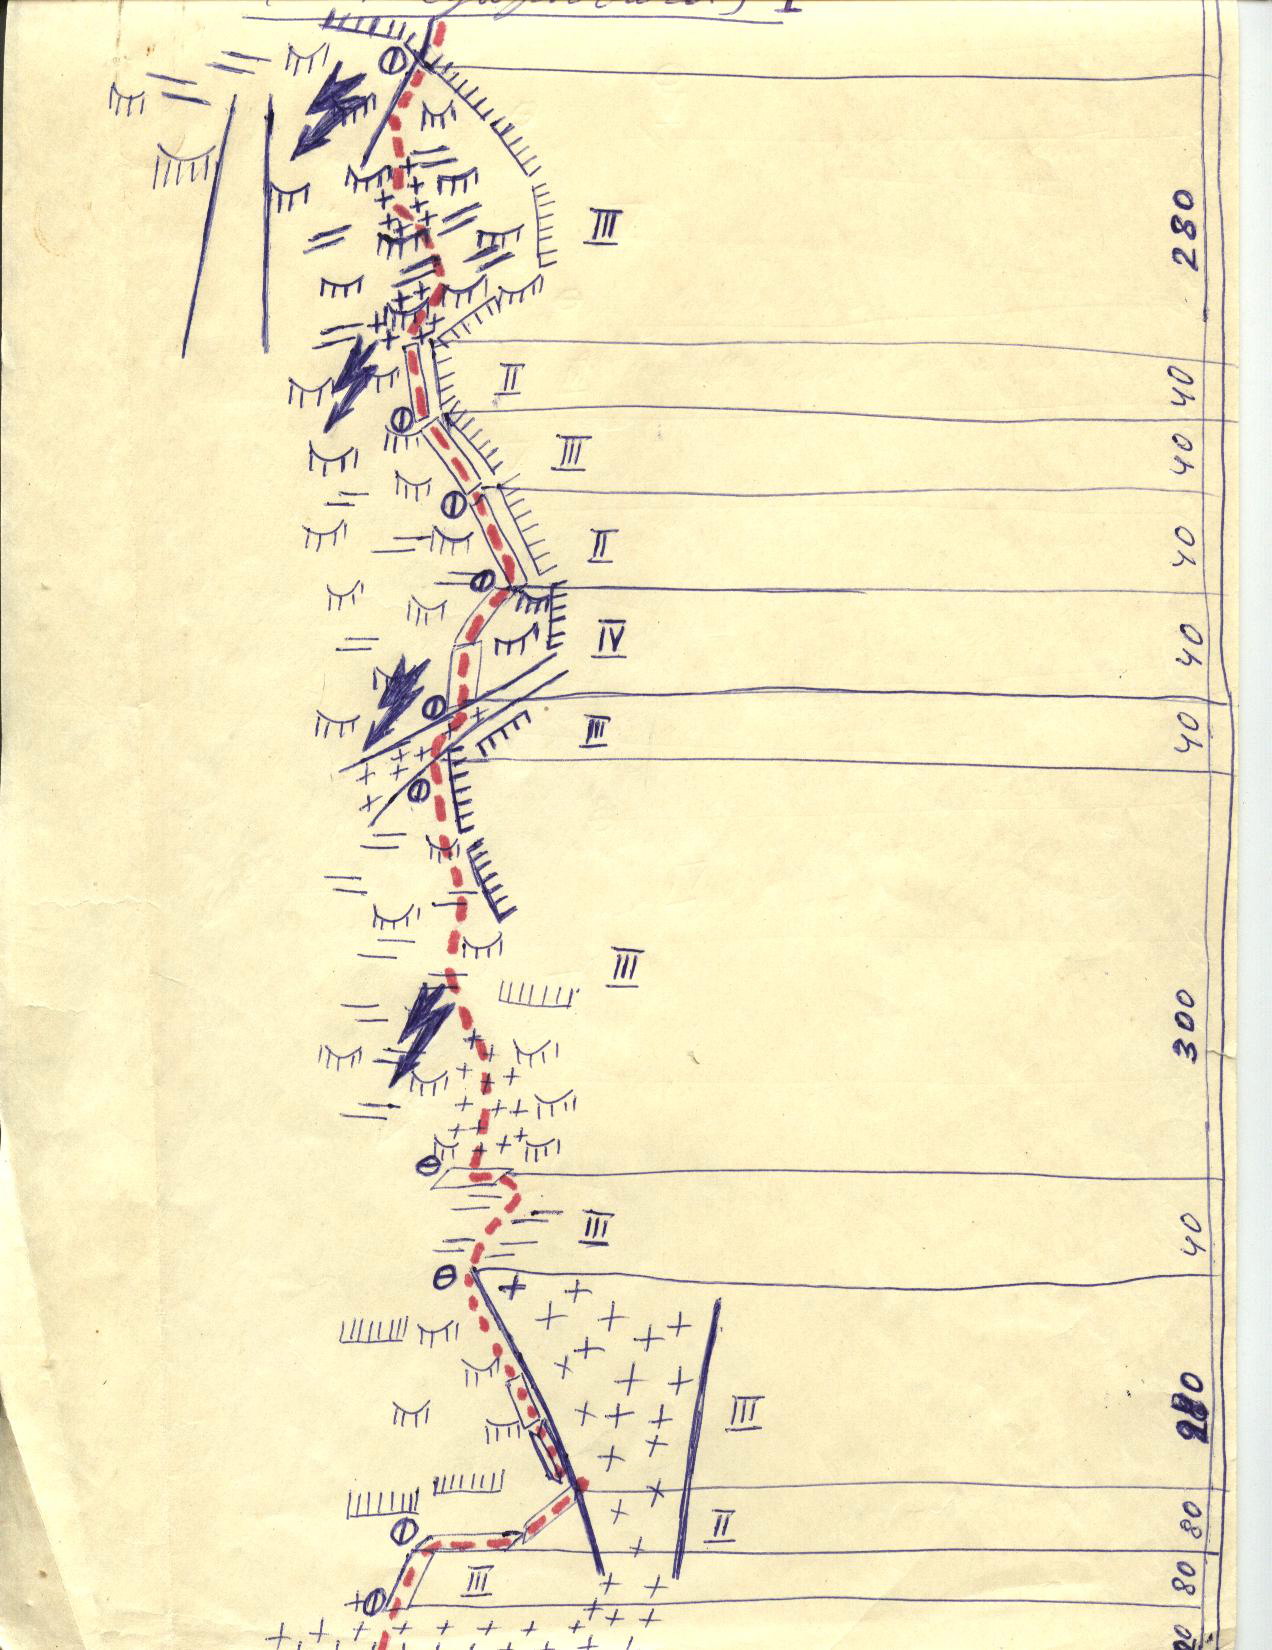 I
280
III
II
40
III
40
II
40
IV
40
III
40
III
300
III
40
III
II
80
III
80